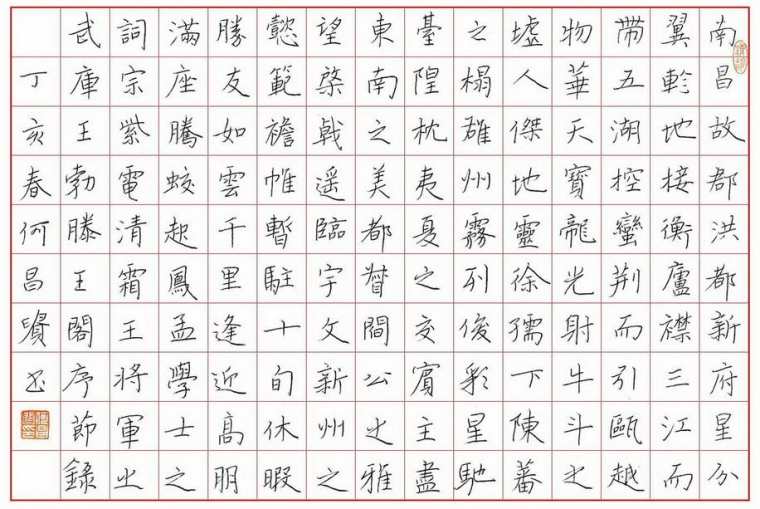 南昌故郡洪都新府星分
翼軫地接衡廬襟三江而
帶五湖控蠻荆而引甌越
物華天寶龍光射牛斗之
墟人傑地靈徐孺下陳蕃
之榻雄州霧列俊彩星馳
臺隍枕夷夏之交賓主盡
東南之美都督閻公之雅
望棨戟遥臨宇文新州之
懿範襜帷暫駐十旬休暇
勝友如雲千里逢迎高朋
滿座騰蛟起鳳孟學士之
詞宗紫電清霜王將軍之
武庫王勃滕王閣序節錄
丁亥春何昌賢書